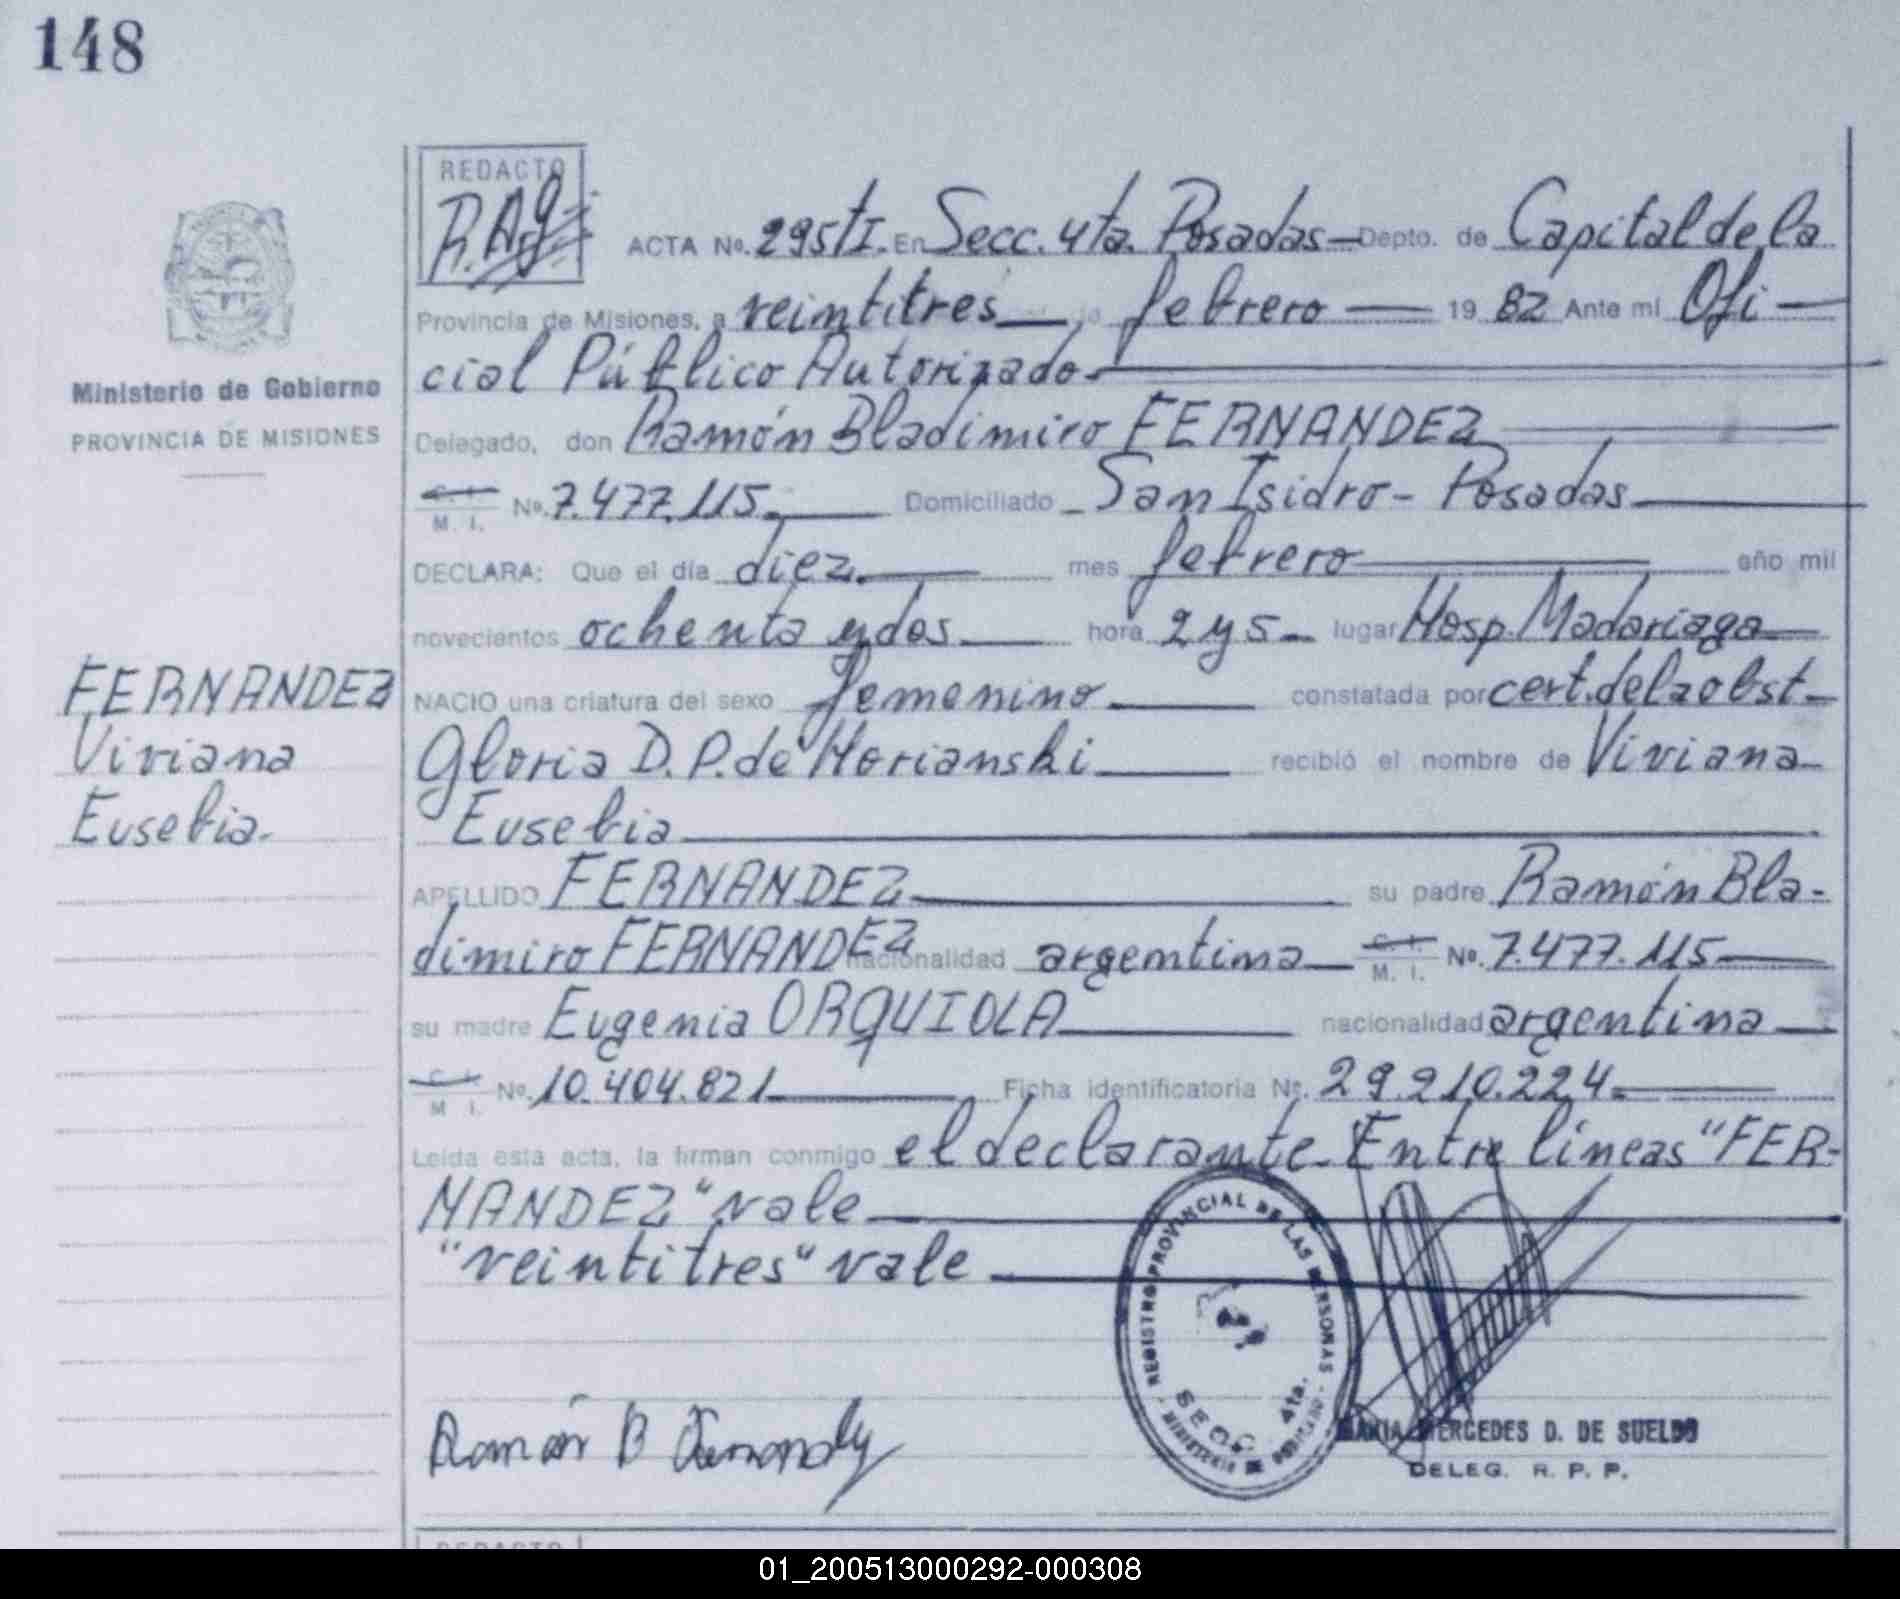 148
REDACTO
ACTA No. 295 tI. En Secc. 4ta. Posadas — Depto. de Capital de la
Provincia de Misiones, a veintitres — de febrero — 19 82 Ante mi Ofi —
cial Público Autorizado.
Ministerio de Gobierno
PROVINCIA DE MISIONES
Delegado, don Ramón Bladimiro FERNANDEZ
C. I.
M. I. No. 7.477.115. Domiciliado San Isidro - Posadas
DECLARA: Que el día diez. mes febrero año mil
novecientos ochenta y dos. hora 2 y 5 lugar Hosp. Madariaga
NACIO una criatura del sexo femenino constatada por cert. de la obst
Gloria D. P. de Morianski recibió el nombre de Viviana
Eusebia
FERNANDEZ
Viviana
Eusebia.
APELLIDO FERNANDEZ su padre Ramón Bla-
dimiro FERNANDEZ nacionalidad argentina C. I.
M. I. No. 7.477.115
su madre Eugenia ORQUIOLA nacionalidad argentina
C. I.
M. I. No. 10.404.821 Ficha identificatoria No. 29.210.224.
Leída esta acta, la firman conmigo el declarante. Entre líneas "FER-
NANDEZ" vale
"veintitres" vale
REGISTRO PROVINCIAL DE LAS PERSONAS
SECC. 4ta.
MINISTERIO DE GOBIERNO
Ramón B Fernandez
MARIA MERCEDES D. DE SUELDO
DELEG. R. P. P.
REDACTO
01_200513000292-000308